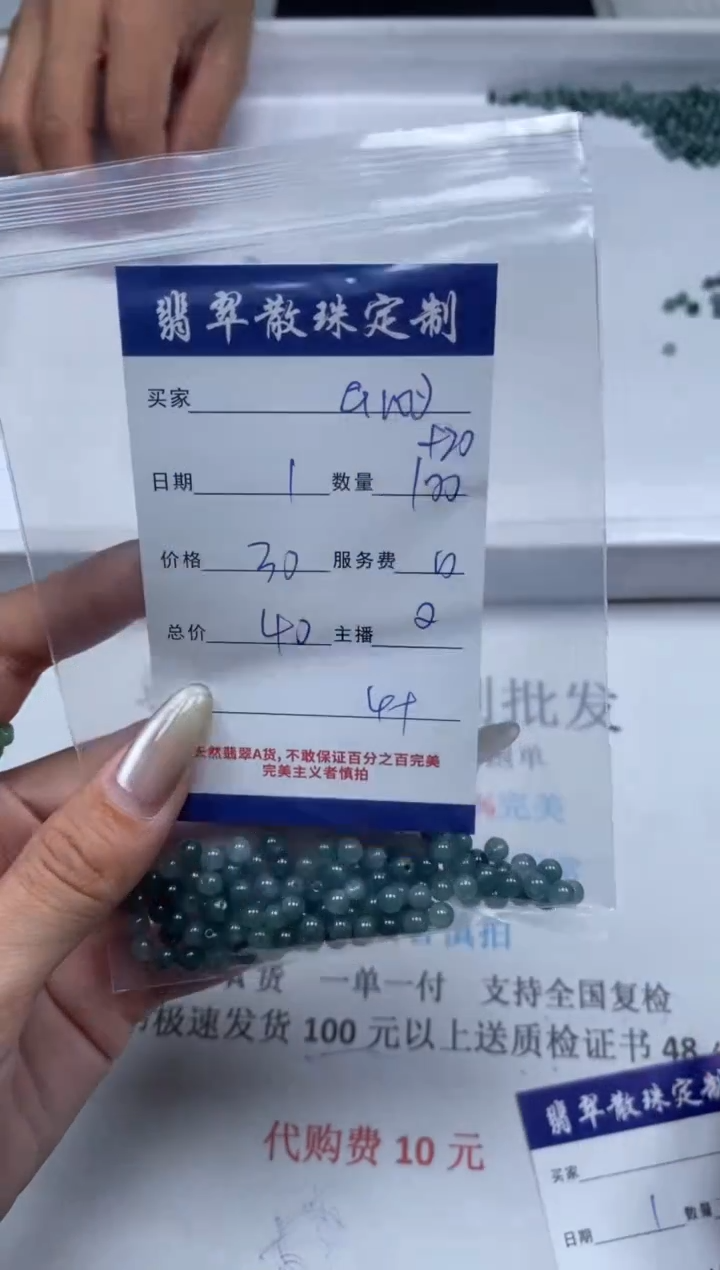 翡翠散珠定制
买家
+20
日期 1 数量 100
价格 30 服务费 10
总价 40 主播 2
4+
天然翡翠A货,不敢保证百分之百完美
完美主义者慎拍
批发
单
%完美
慎拍
A货 一单一付 支持全国复检
极速发货 100 元以上送质检证书 48
代购费 10 元
翡翠散珠定制
买家
日期 1 数量